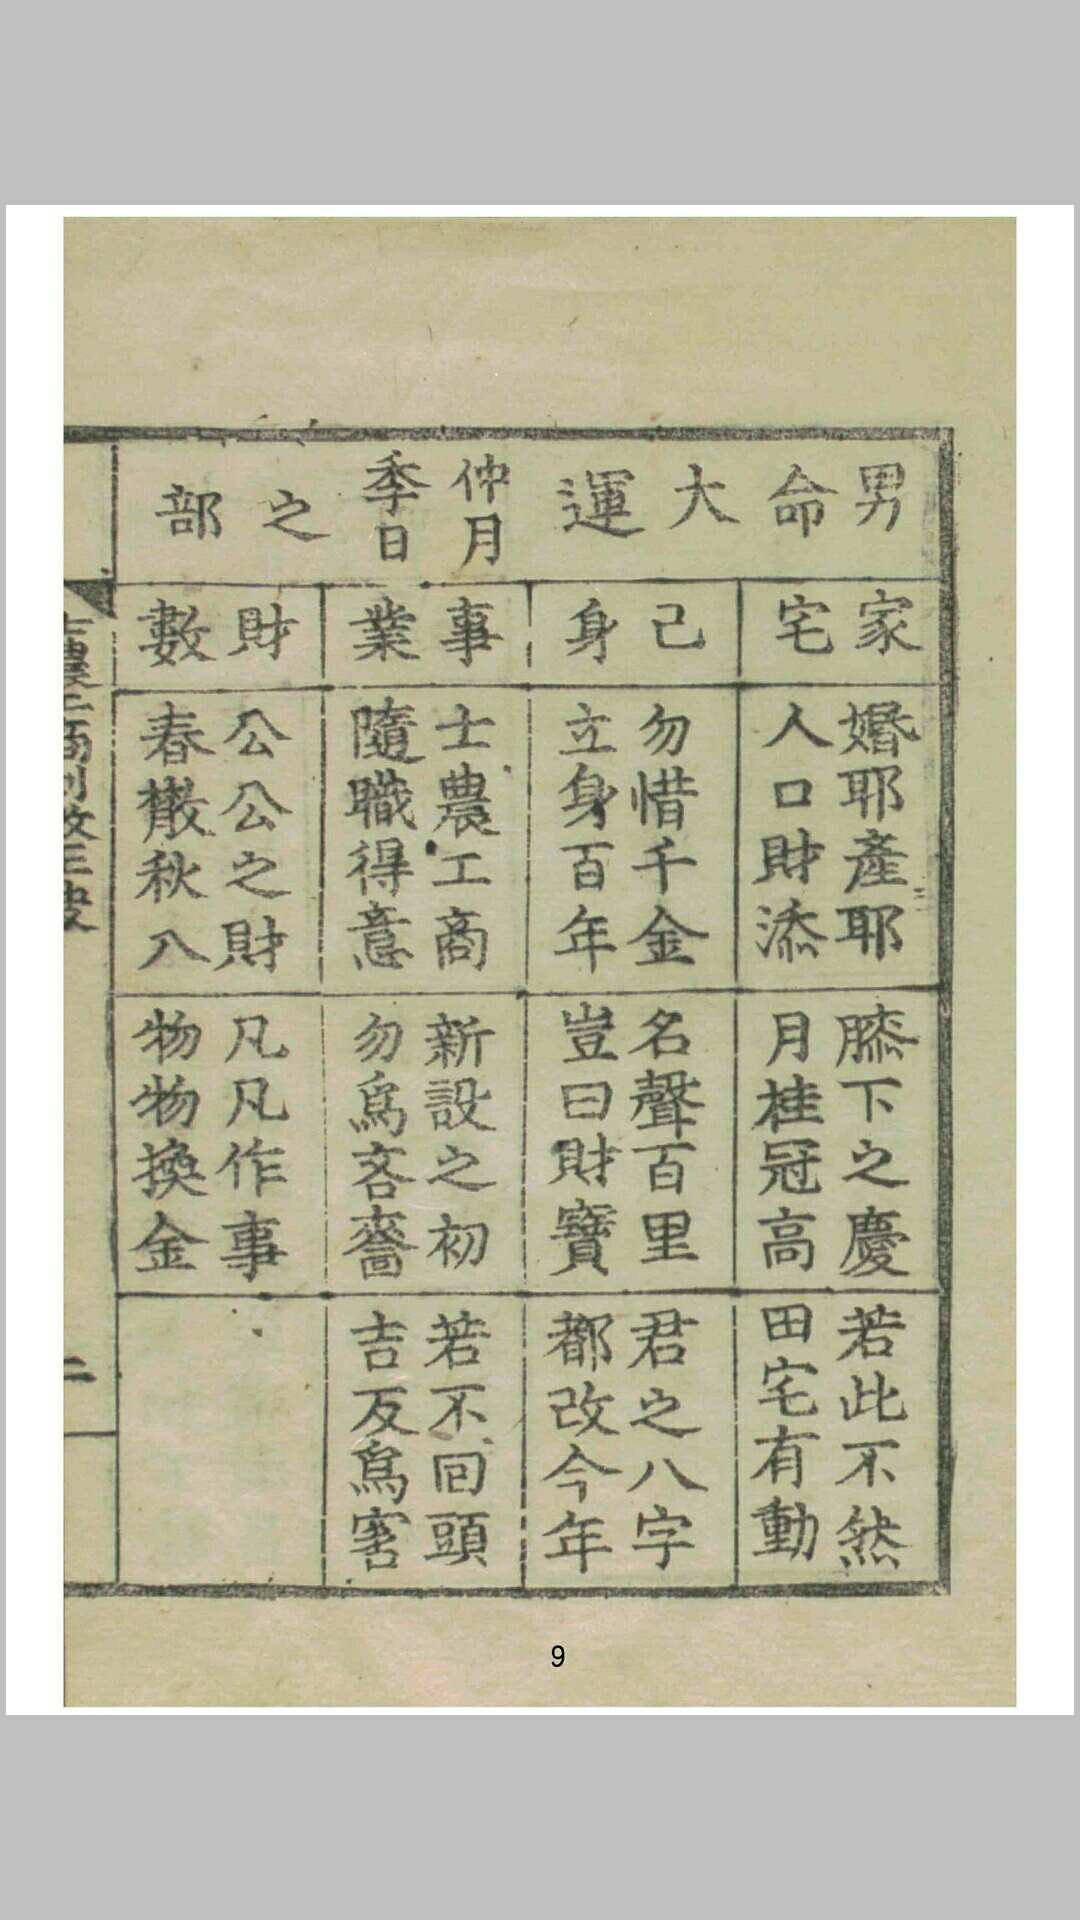 男命大運仲月季日之部
家宅
婚耶產耶
人口財添
膝下之慶
月桂冠高
若此不然
田宅有動
己身
勿惜千金
立身百年
名聲百里
豈曰財寶
君之八字
都改今年
事業
士農工商
隨職得意
新設之初
勿爲吝嗇
若不回頭
吉反爲害
財數
公公之財
春散秋八
凡凡作事
物物換金
二
9